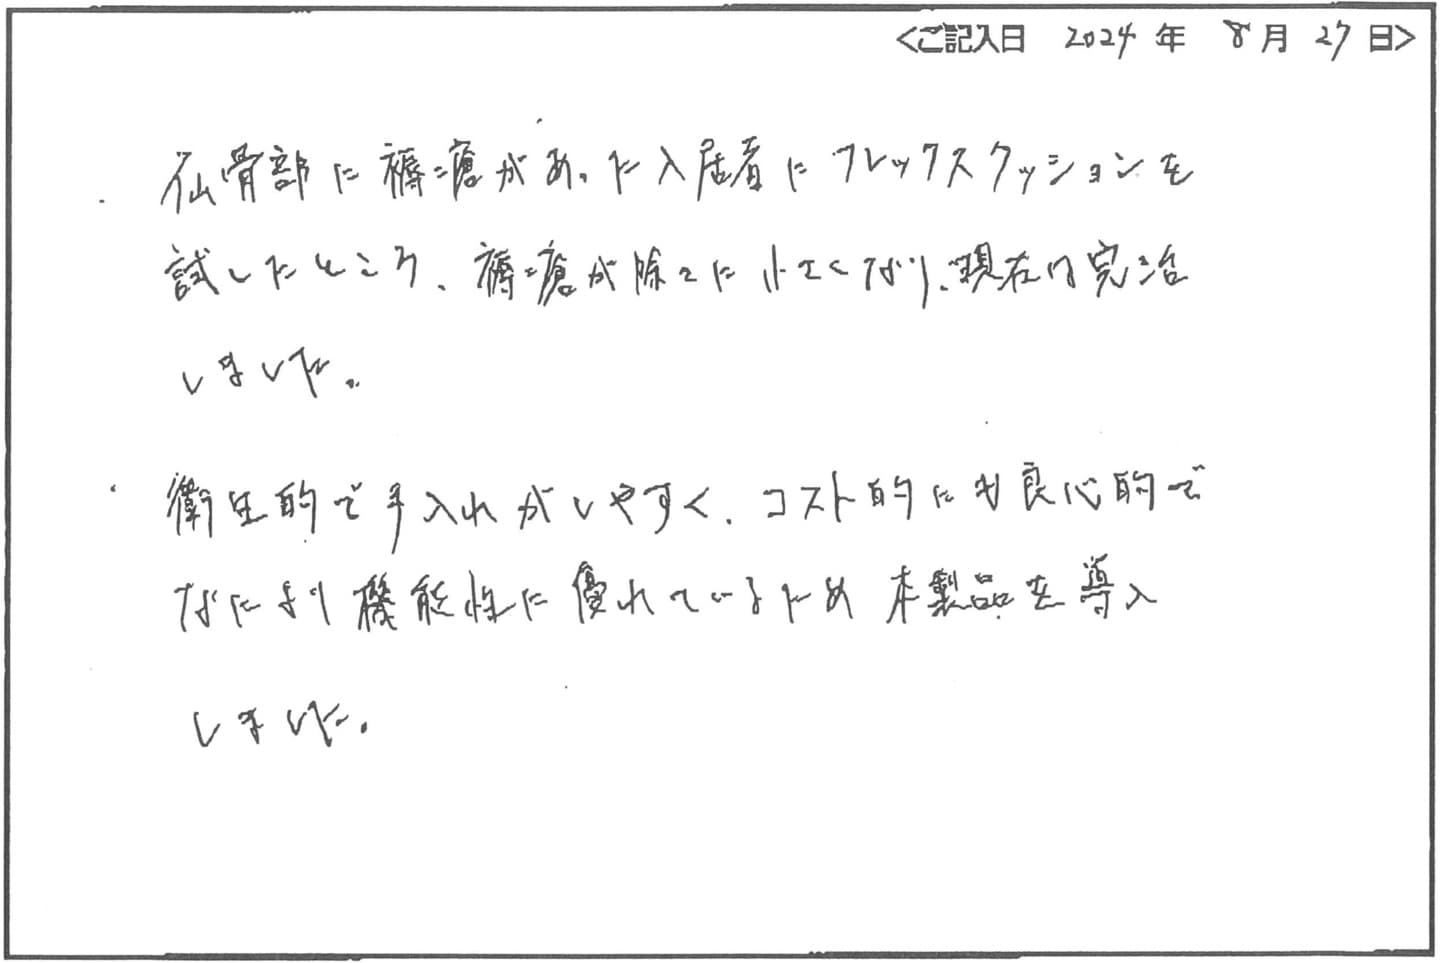 <ご記入日 2024年 8月27日>
・仙骨部に褥瘡があった入居者にフレックスクッションを
試したところ、褥瘡が除々に小さくなり、現在は完治
しました。
・衛生的で手入れがしやすく、コスト的にも良心的で
なにより機能性に優れているため本製品を導入
しました。